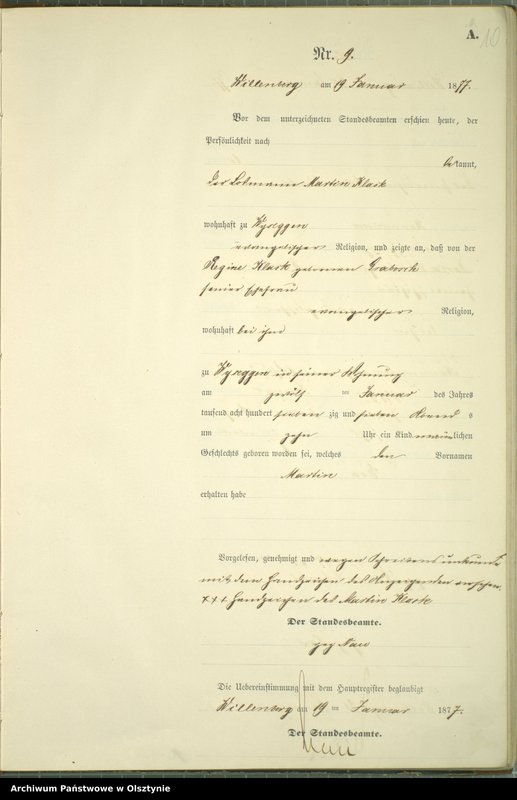 A.
10
Nr. 9.
Willenberg am 19 Januar 1877.
Vor dem unterzeichneten Standesbeamten erschien heute, der
Persönlichkeit nach
bekannt,
der Losmann Martin Klask
wohnhaft zu Wyseggen
evangelischer Religion, und zeigte an, daß von der
Regine Klask geborenen
seiner Ehefrau
evangelischer Religion,
wohnhaft bei ihm
zu Wyseggen in seiner Wohnung
am zwölf ten Januar des Jahres
tausend acht hundert sieben zig und sieben Abend s
um zehn Uhr ein Kind männlichen
Geschlechts geboren worden sei, welches den Vornamen
Martin
erhalten habe
Vorgelesen, genehmigt und wegen Schreibensunkunde
mit dem Handzeichen des Anzeigenden versehen.
+++ Handzeichen des Martin Klask
Der Standesbeamte.
gez Nau
Die Uebereinstimmung mit dem Hauptregister beglaubigt
Willenberg am 19 ten Januar 1877.
Der Standesbeamte.
Nau
Archiwum Państwowe w Olsztynie